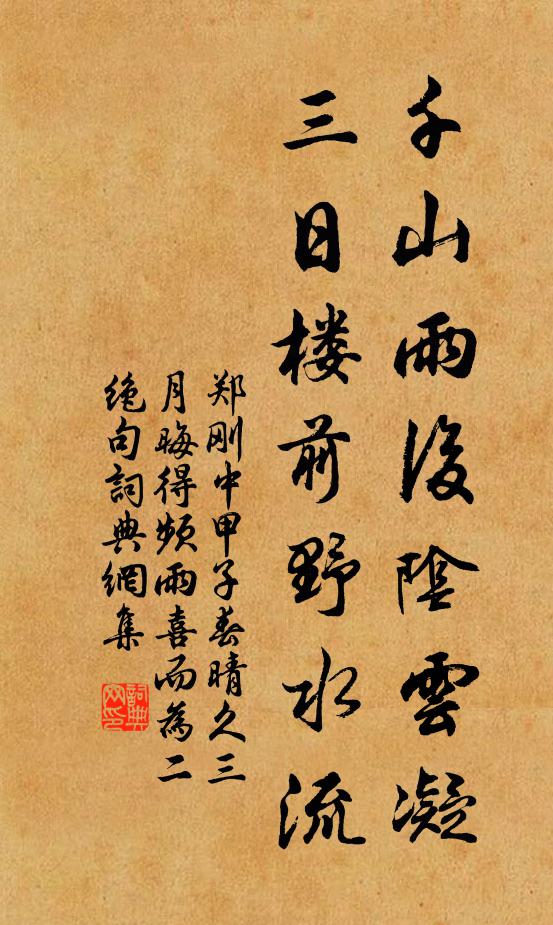 千山雨後陰雲凝
三日楼前野水流
郑刚中甲子春晴久三
月晦得频雨喜而為二
绝句詞典網集
詞典网印